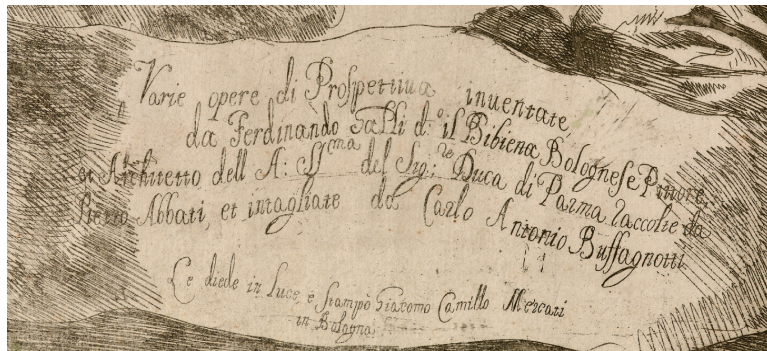 Varie opere di Prospettiua inuentate,
da Ferdinando Galli d.º il Bibiena Bolognese Pittore,
et Architetto dell A: S.ma del Sig:re Duca di Parma raccolte da
Pietro Abbati, et intagliate da Carlo Antonio Buffagnotti
Le diede in Luce, e stampò Giacomo Camillo Mercati
in Bologna